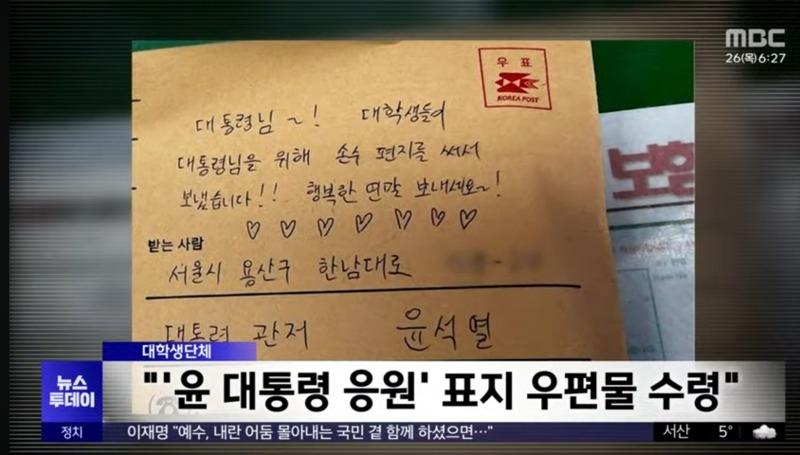 MBC
26(목) 6:27
우 표
KOREA POST
대통령님 ~! 대학생들이
대통령님을 위해 손수 편지를 써서
보냈습니다!! 행복한 연말 보내세요~!
받는 사람
서울시 용산구 한남대로
대통령 관저 윤석열
보험
대학생단체
뉴스
투데이
"'윤 대통령 응원' 표지 우편물 수령"
정치 이재명 "예수, 내란 어둠 몰아내는 국민 곁 함께 하셨으면…" 서산 5°